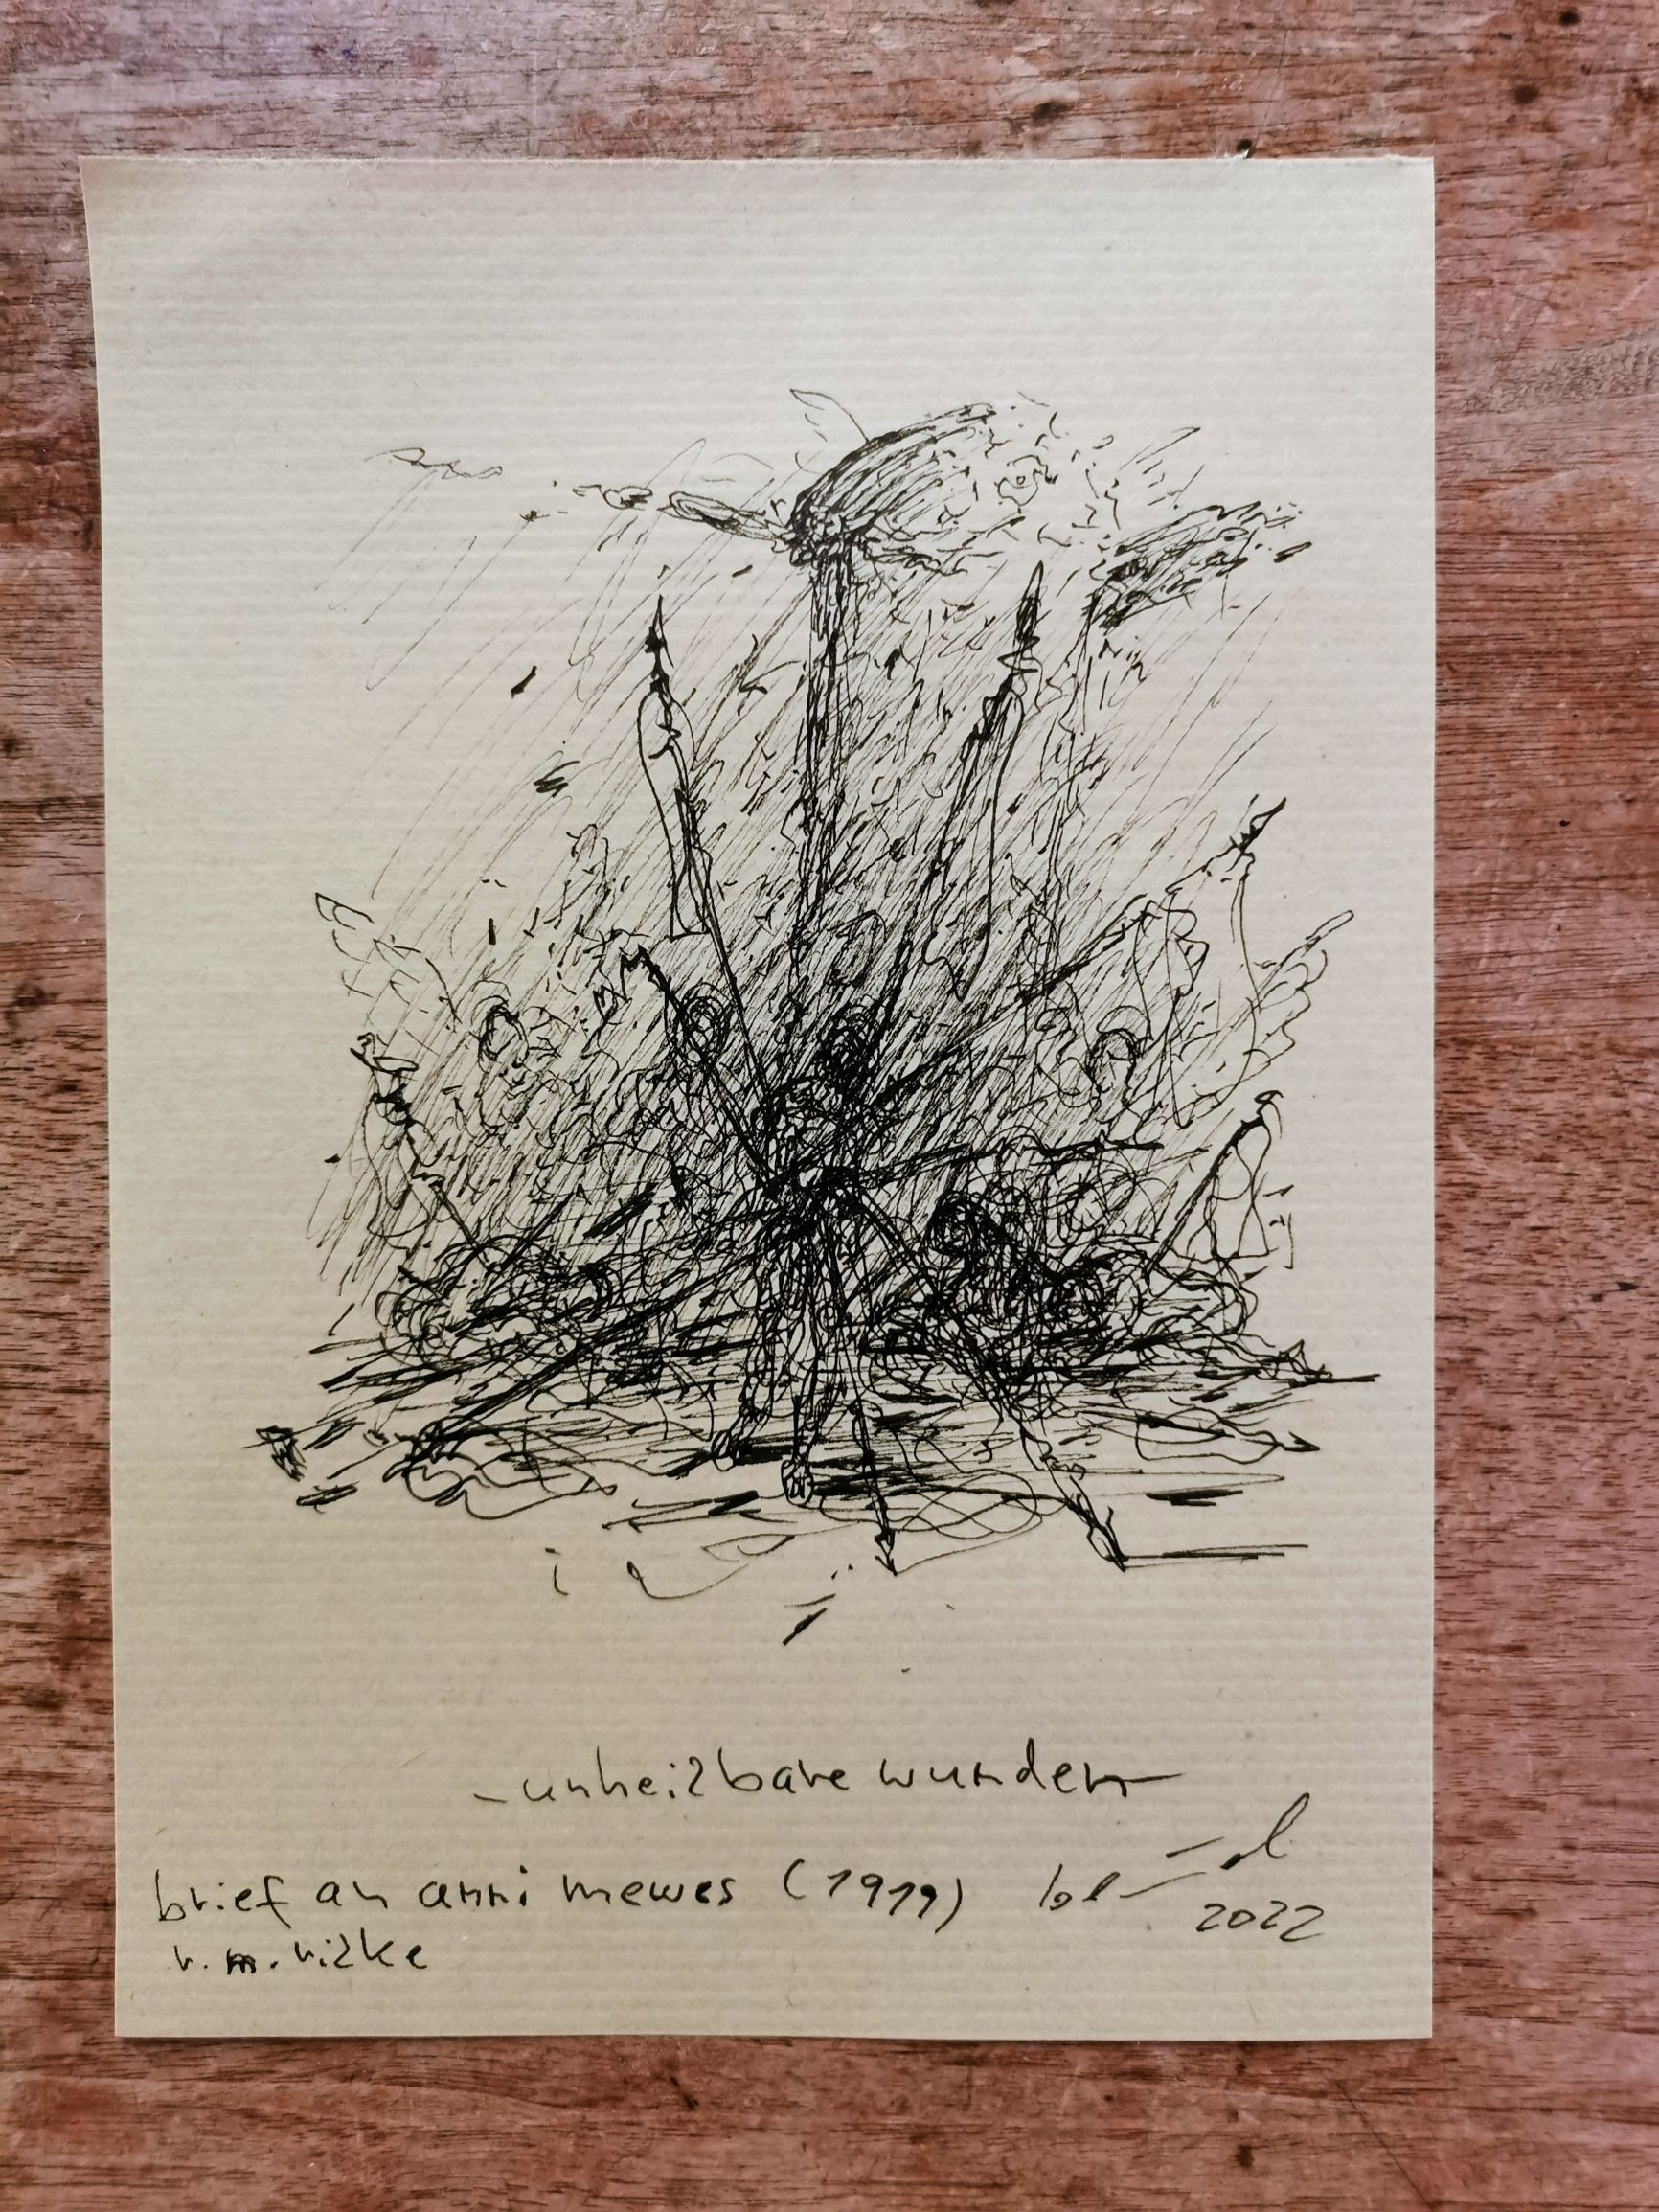 - unheilbare wunden -
brief an anni mewes (1919)
r. m. rilke
2022